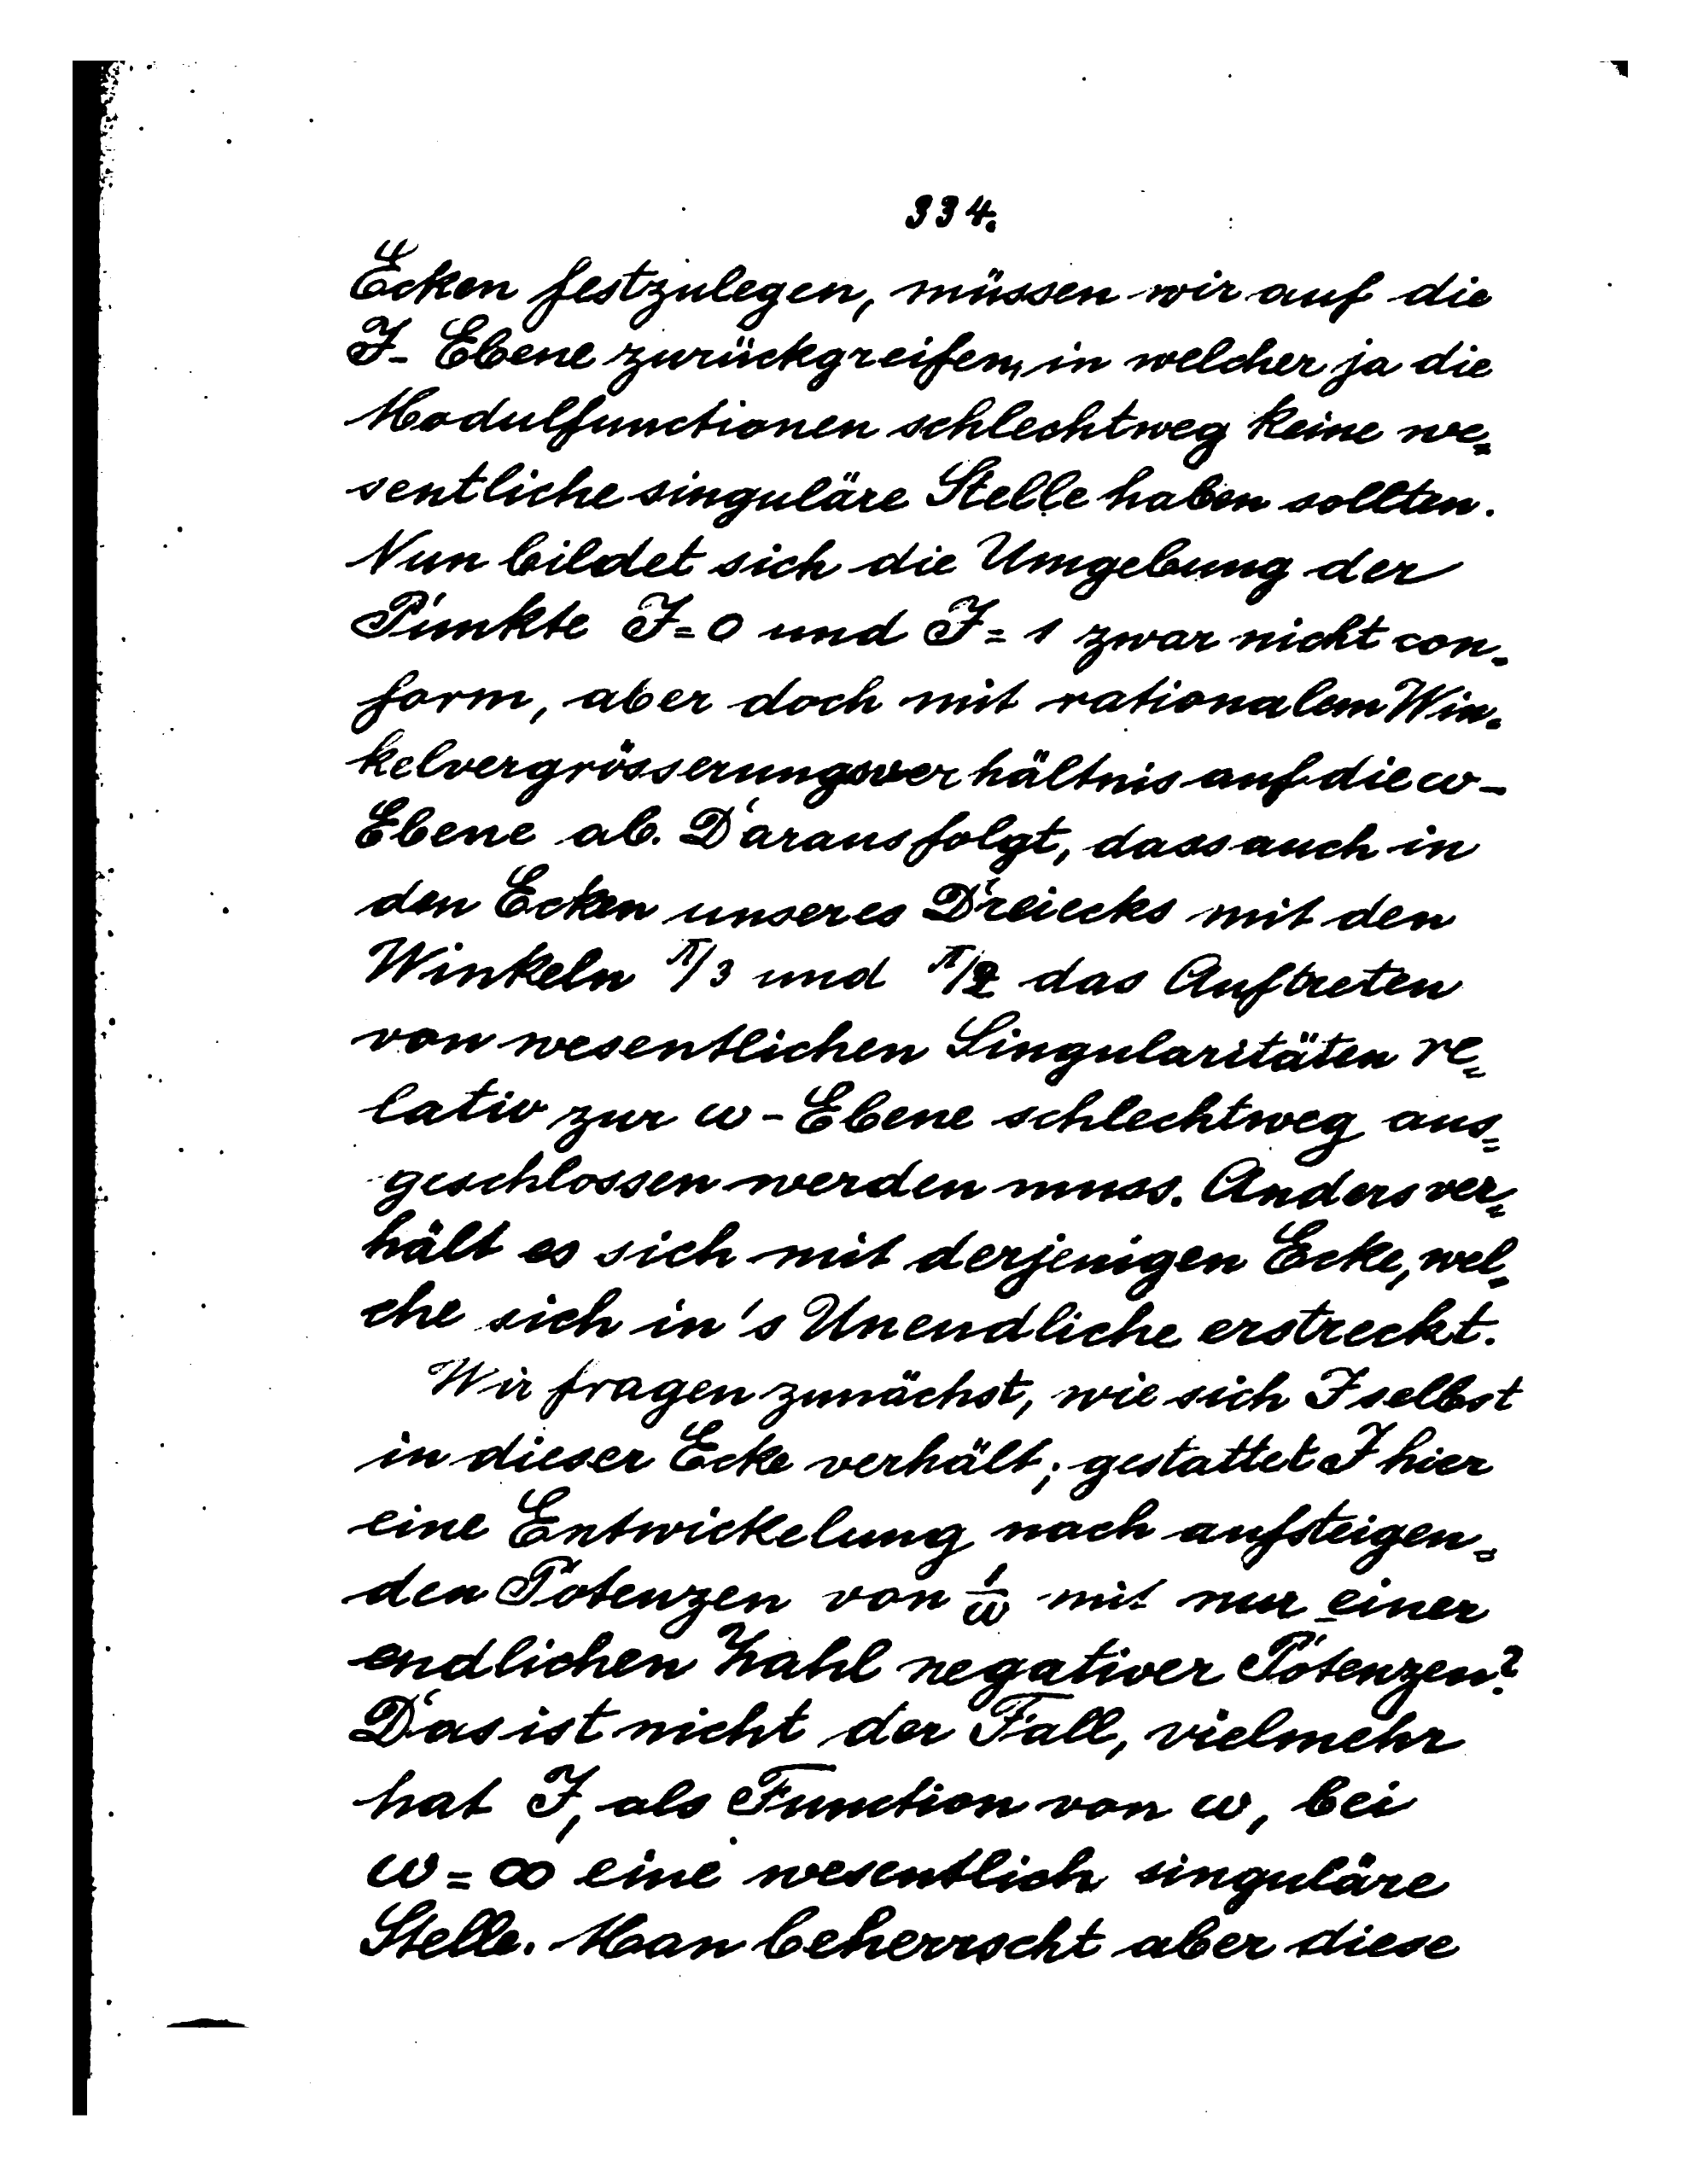 334.
Ecken festzulegen, müssen wir auf die
J- Ebene zurückgreifen, in welcher ja die
Modulfunctionen schlechtweg keine we=
sentliche singuläre Stelle haben sollten.
Nun bildet sich die Umgebung der
Punkte J=0 und J=1 zwar nicht con-
form, aber doch mit rationalem Win-
kelvergrösserungsverhältnis auf die ω-
Ebene ab. Daraus folgt, dass auch in
den Ecken unseres Dreiecks mit den
Winkeln π/3 und π/2 das Auftreten
von wesentlichen Singularitäten re=
lativ zur ω-Ebene schlechtweg aus=
geschlossen werden muss. Anders ver=
hält es sich mit derjenigen Ecke, wel-
che sich in's Unendliche erstreckt.
Wir fragen zunächst, wie sich J selbst
in dieser Ecke verhält; gestattet J hier
eine Entwickelung nach aufsteigen-
den Potenzen von 1/ω mit nur einer
endlichen Zahl negativer Potenzen?
Das ist nicht der Fall, vielmehr
hat J, als Function von ω, bei
ω=∞ eine wesentlich singuläre
Stelle. Man beherrscht aber diese